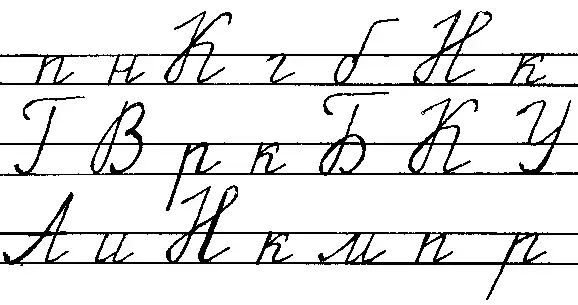 п н К г б Н к
Г В р к Б К У
А и Н к м п р